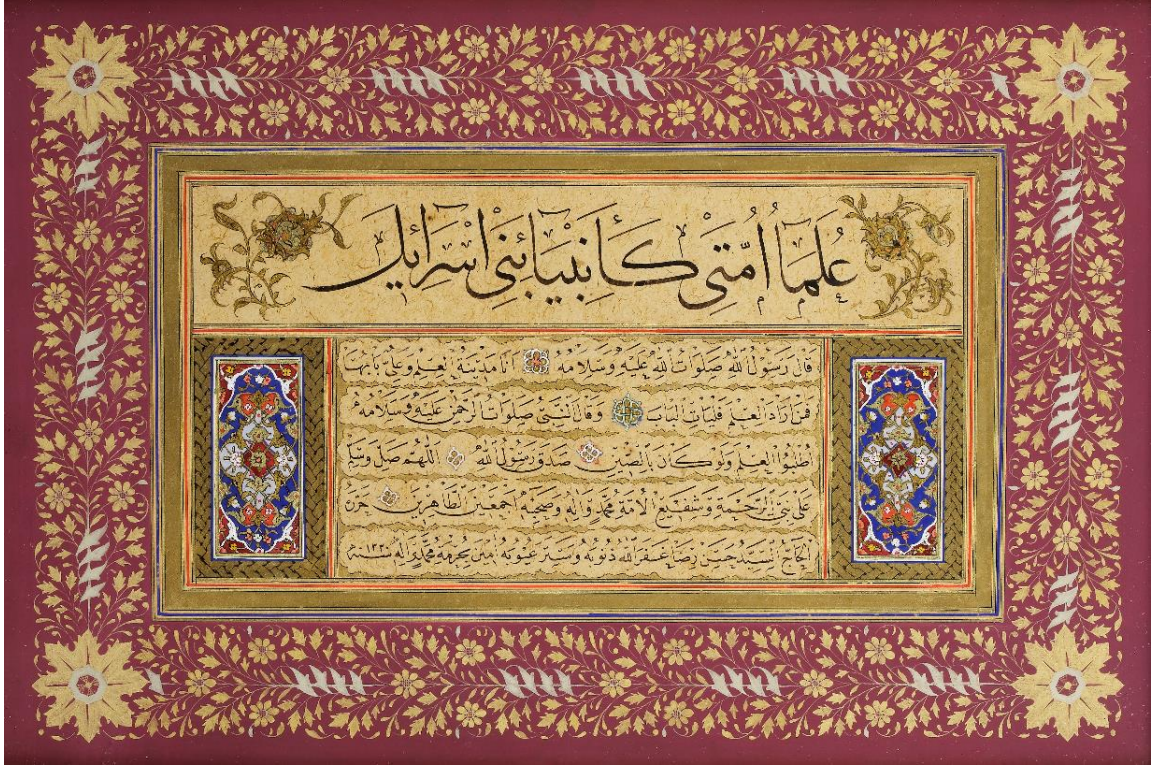 عُلَمَاۤءُ اُمَّتِىۡ كَأَنۡبِيَاۤءِ بَنِىۤ اِسْرَاۤئِيلَ
قال رسول الله صلوات الله عليه وسلامه انا مدينة العلم وعلى بابها
فمن اراد العلم فليات الباب وقال النبى صلوات الرحمن عليه وسلامه
اطلبوا العلم ولو كان بالصين صدق رسول الله اللهم صل وسلم
على نبى الرحمة وشفيع الامة محمد واله وصحبه اجمعين الطاهرين حرره
الحاج السيد حسن رضا غفر الله ذنوبه وستر عيوبه امين بحرمة محمد واله سنة